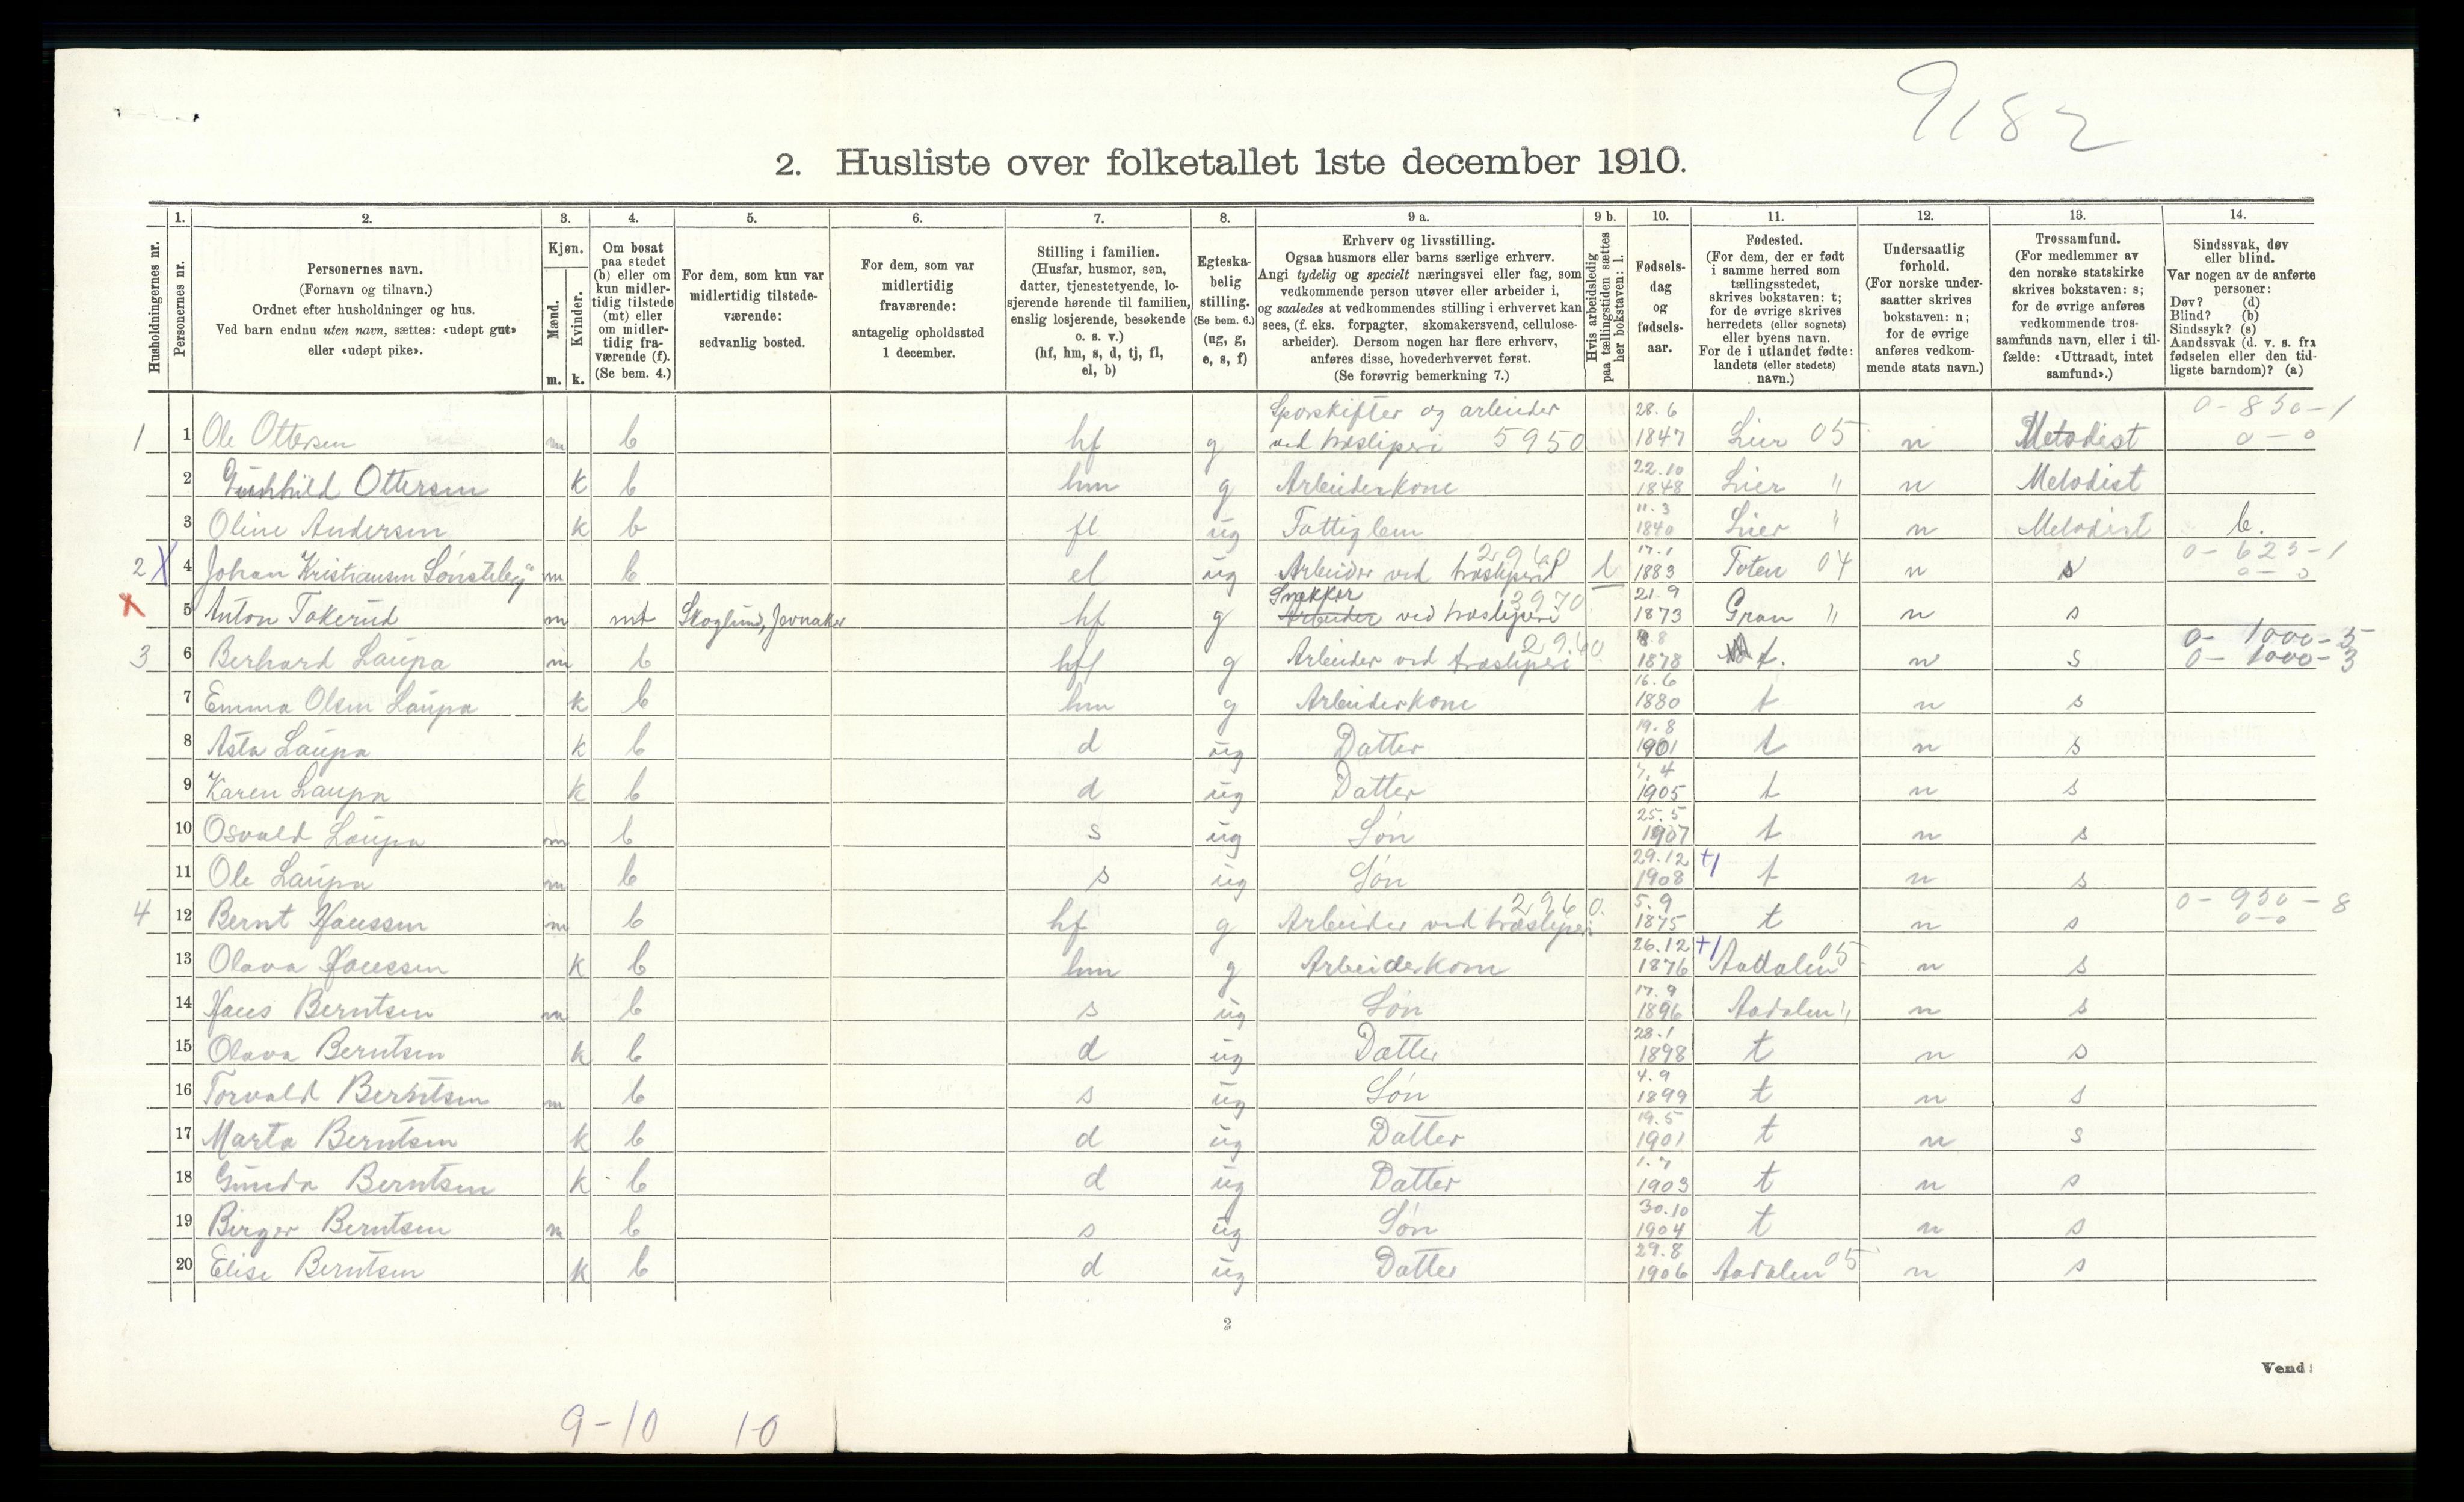 9182
2. Husliste over folketallet 1ste december 1910.
Husholdningernes nr.
1.
Personernes nr.
2.
Personernes navn.
(Fornavn og tilnavn.)
Ordnet efter husholdninger og hus.
Ved barn endnu uten navn, sættes: «udøpt gut»
eller «udøpt pike».
3.
Kjøn.
Mænd.
Kvinder.
m.
k.
4.
Om bosat
paa stedet
(b) eller om
kun midler-
tidig tilstede
(mt) eller
om midler-
tidig fra-
værende (f).
(Se bem. 4.)
5.
For dem, som kun var
midlertidig tilstede-
værende:
sedvanlig bosted.
6.
For dem, som var
midlertidig
fraværende:
antagelig opholdssted
1 december.
7.
Stilling i familien.
(Husfar, husmor, søn,
datter, tjenestetyende, lo-
sjerende hørende til familien,
enslig losjerende, besøkende
o. s. v.)
(hf, hm, s, d, tj, fl,
el, b)
8.
Egteska-
belig
stilling.
(Se bem. 6.)
(ug, g,
e, s, f)
9 a.
Erhverv og livsstilling.
Ogsaa husmors eller barns særlige erhverv.
Angi tydelig og specielt næringsvei eller fag, som
vedkommende person utøver eller arbeider i,
og saaledes at vedkommendes stilling i erhvervet kan
sees, (f. eks. forpagter, skomakersvend, cellulose-
arbeider). Dersom nogen har flere erhverv,
anføres disse, hovederhvervet først.
(Se forøvrig bemerkning 7.)
9 b.
Hvis arbeidsledig
paa tællingstiden sættes
her bokstaven: l.
10.
Fødsels-
dag
og
fødsels-
aar.
11.
Fødested.
(For dem, der er født
i samme herred som
tællingsstedet,
skrives bokstaven: t;
for de øvrige skrives
herredets (eller sognets)
eller byens navn.
For de i utlandet fødte:
landets (eller stedets)
navn.)
12.
Undersaatlig
forhold.
(For norske under-
saatter skrives
bokstaven: n;
for de øvrige
anføres vedkom-
mende stats navn.)
13.
Trossamfund.
(For medlemmer av
den norske statskirke
skrives bokstaven: s;
for de øvrige anføres
vedkommende tros-
samfunds navn, eller i til-
fælde: «Uttraadt, intet
samfund».)
14.
Sindssvak, døv
eller blind.
Var nogen av de anførte
personer:
Døv? (d)
Blind? (b)
Sindssyk? (s)
Aandssvak (d. v. s. fra
fødselen eller den tid-
ligste barndom)? (a)
Sporskifter og arbeider 28.6 0-830-1
1 1 Ole Ottersen m b hf g ved træsliperi 5950 1847 Lier 05 n Metodist 0-0
22.10
2 Gunhild Ottersen k b hm g Arbeiderkone 1848 Lier " n Metodist
11.3
3 Oline Andersen k b fl ug Fattiglem 1840 Lier " n Metodist b.
2960 17.1 0-623-1
2 X 4 Johan Kristiansen m b el ug Arbeider ved træsliperi l 1883 Toten 04 n s 0-0
Snekker 3970 21.9
X 5 Anton Takerud m mt Skoglund, Jevnaker hf g Arbeider ved træsliperi 1873 Gran " n s
2960 8.8 0-1000-5
3 6 Berhard Laupa m b hf g Arbeider ved træsliperi 1878 t. n s 0-1000-3
16.6
7 Emma Olsen Laupa k b hm g Arbeiderkone 1880 t n s
19.8
8 Asta Laupa k b d ug Datter 1901 t n s
7.4
9 Karen Laupa k b d ug Datter 1905 t n s
25.5
10 Osvald Laupa m b s ug Søn 1907 t n s
29.12 +1
11 Ole Laupa m b s ug Søn 1908 t n s
2960. 5.9 0-930-8
4 12 Bernt Hanssen m b hf g Arbeider ved træsliperi 1875 t n s 0-0
26.12 +1
13 Olava Hanssen k b hm g Arbeiderkone 1876 Aadalen 05 n s
17.9
14 Hans Berntsen m b s ug Søn 1896 Aadalen " n s
28.1
15 Olava Berntsen k b d ug Datter 1898 t n s
4.9
16 Torvald Berntsen m b s ug Søn 1899 t n s
19.5
17 Marta Berntsen k b d ug Datter 1901 t n s
1.7
18 Gunda Berntsen k b d ug Datter 1903 t n s
30.10
19 Birger Berntsen m b s ug Søn 1904 t n s
29.8
20 Elise Berntsen k b d ug Datter 1906 Aadalen 05 n s
2
Vend!
9-10 10